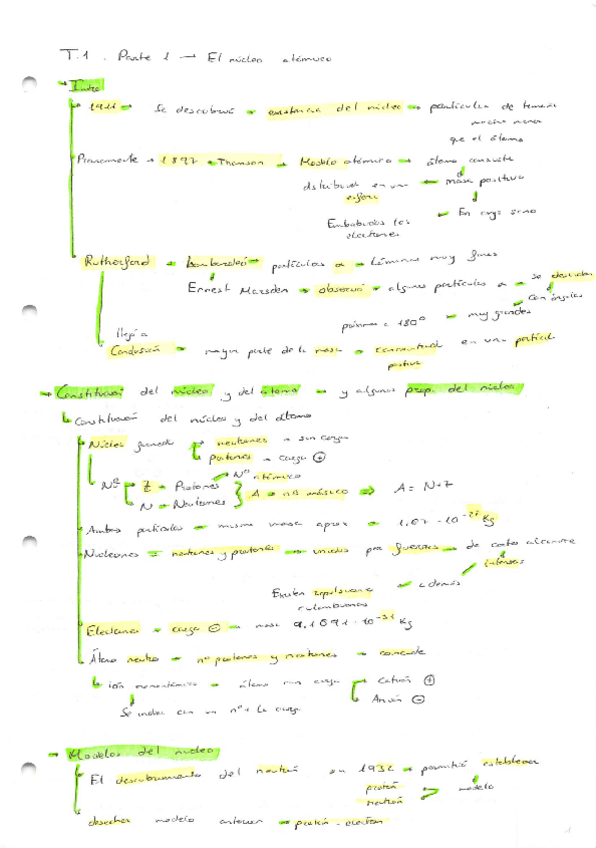 T.1. Parte 1 → El núcleo atómico
Intro
1911 → Se descubrió → existencia del núcleo → partículas de tamaño
mucho menor
que el átomo
Previamente → 1897 → Thomson → Modelo atómico → átomo consiste
distribuida en una ← masa positiva
esfera
En cuyo seno
Embebidos los
electrones
Rutherford → bombardeó → partículas α → láminas muy finas
Ernest Marsden → observó → algunas partículas α → se desviaban
con ángulos
próximos a 180º ← muy grandes
llegó a
Conclusión → mayor parte de la masa → concentrada en una partícula
positiva
→ Constitución del núcleo y del átomo → y algunas prop. del núcleo
Constitución del núcleo y del átomo
Núcleo formado neutrones → sin carga
protones → carga ⊕
Nº atómico
Nº Z → Protones
N → Neutrones } A → nº másico ⇒ A = N+Z
Ambas partículas → misma masa aprox → 1,67 · 10⁻²⁷ Kg
Nucleones = neutrones y protones → unidos por fuerzas → de corto alcance
intensas
Existen repulsiones ← además
culombianas
Electrones → carga ⊖ → masa 9,1091 · 10⁻³¹ Kg
Átomo neutro → nº protones y neutrones → coincide
ión monoatómico → átomo con carga Catión ⊕
Anión ⊖
Se indica con un nº y la carga
→ Modelos del núcleo
El descubrimiento del neutrón en 1932 → permitió establecer
protón
modelo
neutrón
desechar modelo anterior → protón - electrón